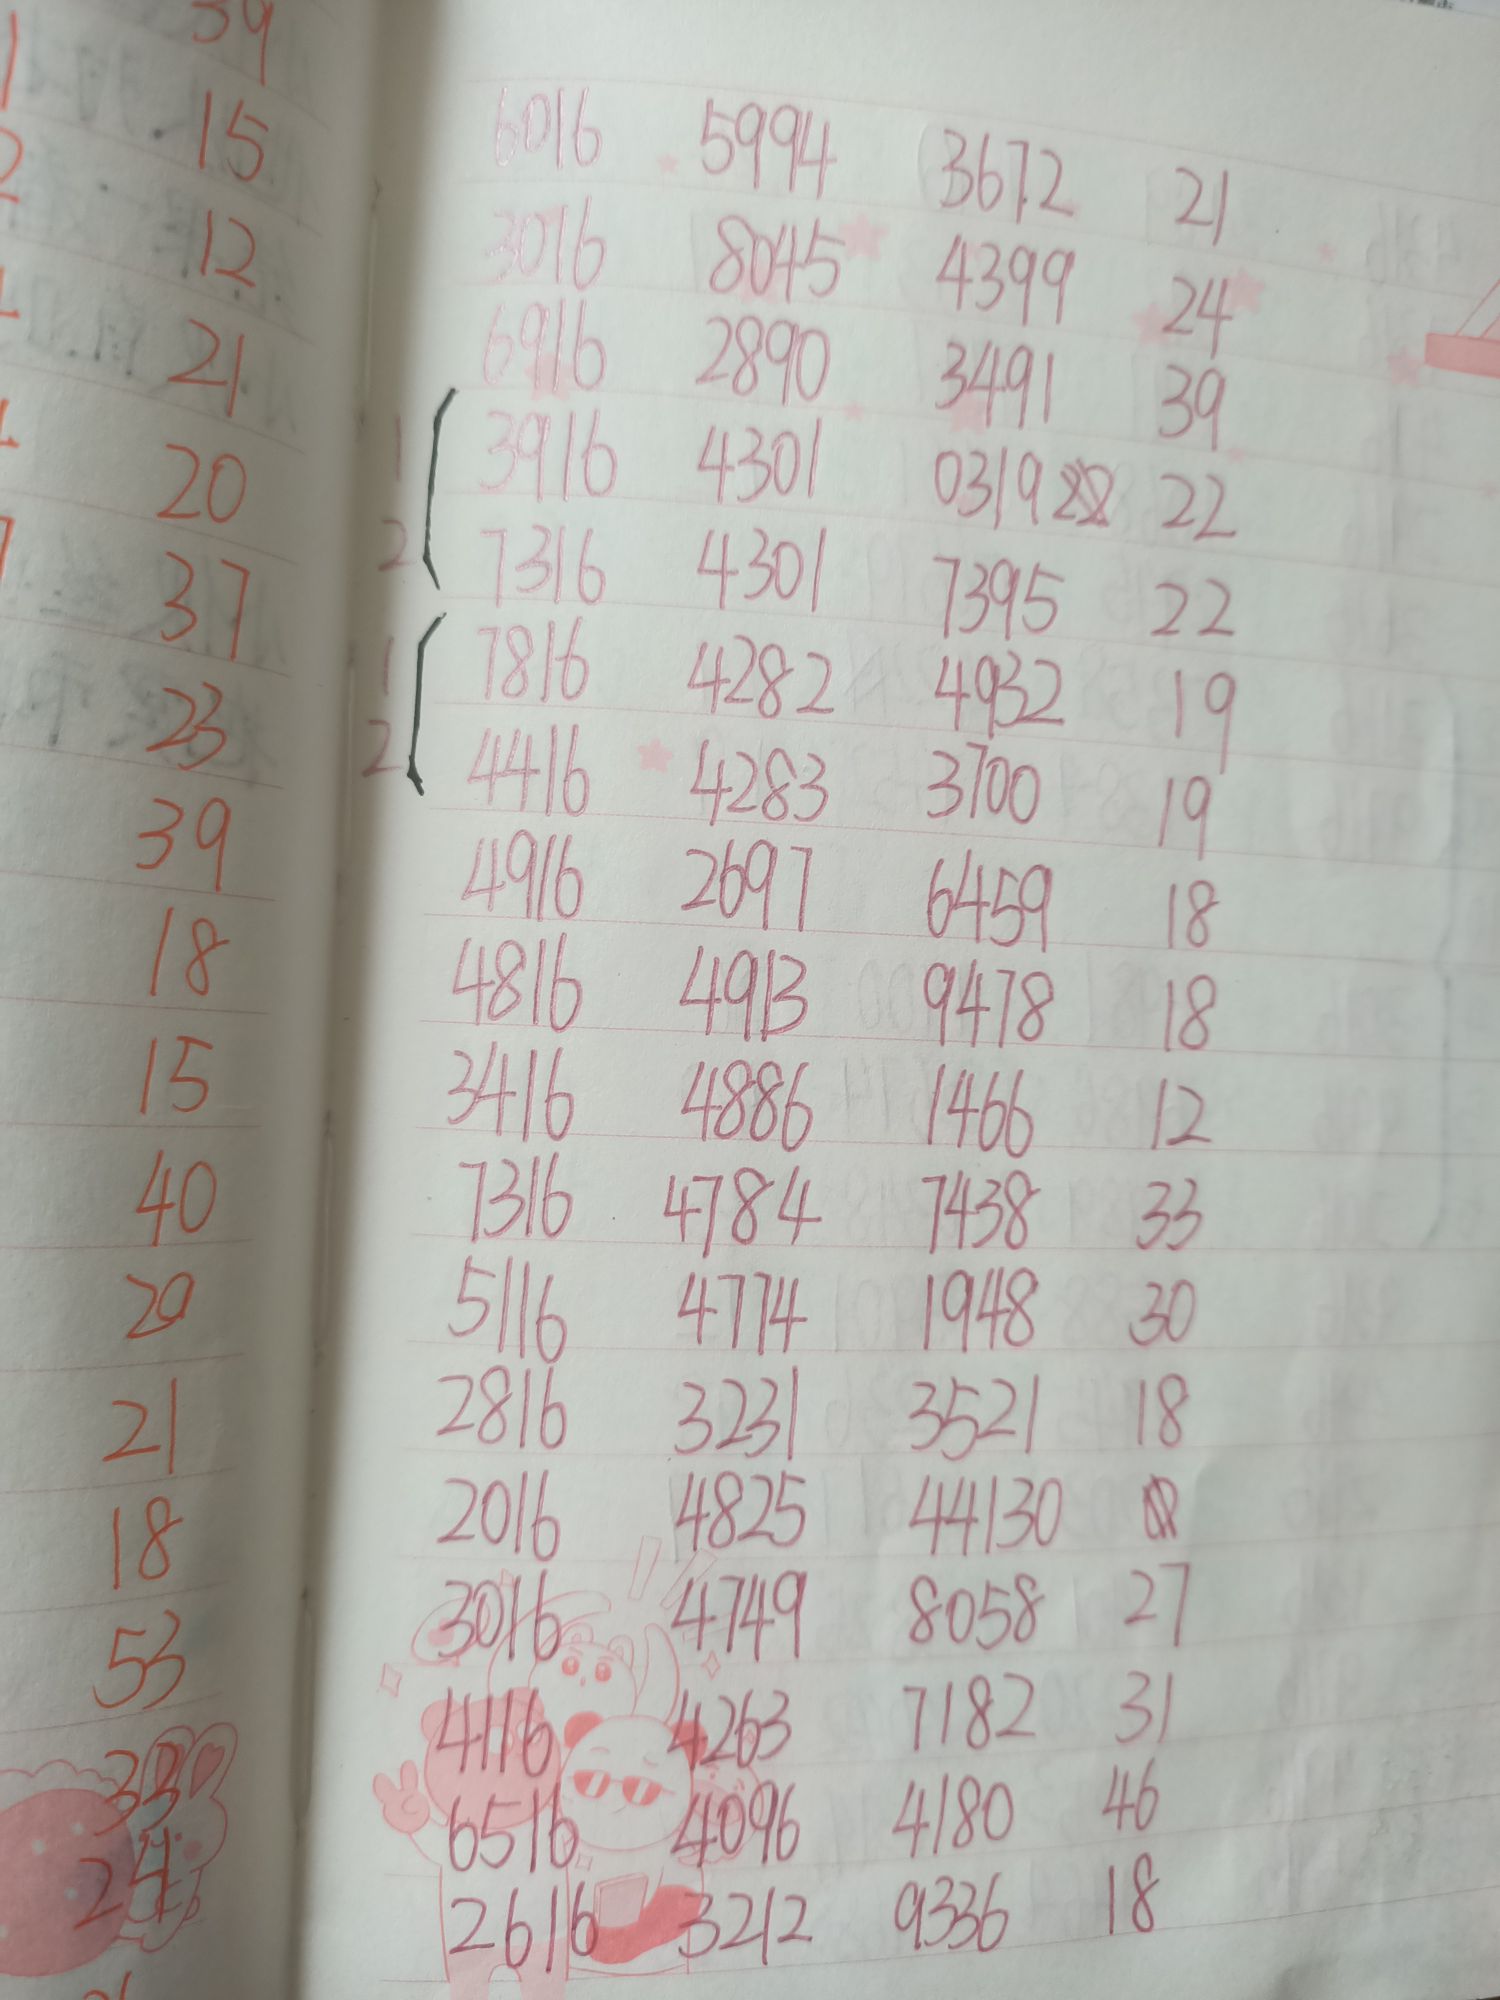 39
15
12
21
20
37
23
39
18
15
40
29
21
18
53
33
24
6016 5994 3672 21
3016 8045 4399 24
6916 2890 3491 39
1 3916 4301 0319 22
2 7316 4301 7395 22
1 7816 4282 4932 19
2 4416 4283 3700 19
4916 2697 6459 18
4816 4913 9478 18
3416 4886 1466 12
7316 4784 7438 33
5116 4774 1948 30
2816 3231 3521 18
2016 4825 44130
3016 4749 8058 27
4116 4263 7182 31
6516 4096 4180 46
2616 3212 9336 18